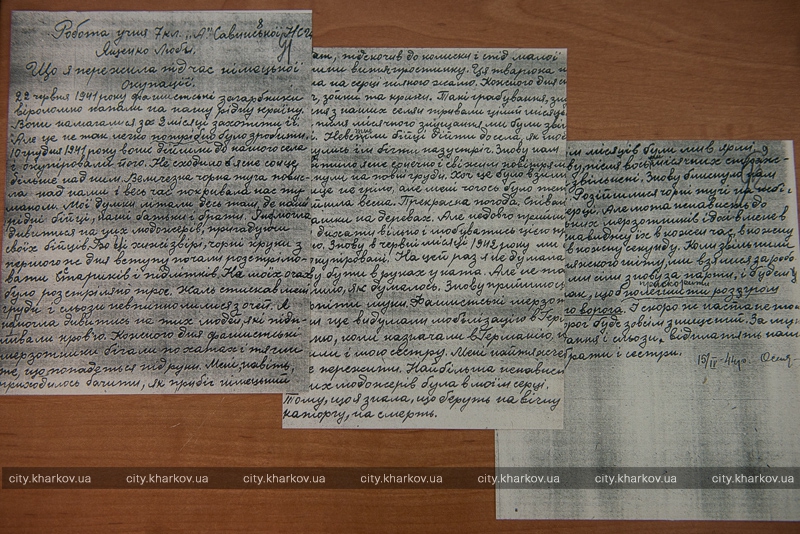 Робота учня 7 кл. "А" Савинської НСШ
Ященко Люби.
Що я пережила під час німецької
окупації.
22 червня 1941 року фашистські загарбники
віроломно напали на нашу рідну країну.
Вони намагалися за 2 місяці захопити її.
Але це не так легко потрібно було зробити.
10 грудня 1941 року вони дійшли до нашого села
і окупірували його. Не сходило б ясне сонце
більше над ним. Величезна чорна туга повис-
ла над нами і весь час покривала нас ту-
маном. Мої думки літали десь там, де наші
рідні бійці, наші батьки і брати.
дивитися на цих людожерів, пригадуючи
своїх бійців. Бо ці хижі звірі, чорні круки з
першого же дня вступу почали розстрілю-
вати стариків і підлітків. На моїх очах
було розстріляно троє. Жаль стискав мені
груди і сльози невпинно лилися з очей. Я
не могла дивитись на тих людей які підпи-
вали кров'ю. Кожного дня фашистські
мерзотники бігали по хатах і тягли
те, що попадеться під руки. Мені навіть,
приходилось бачити, як прибіг німецький
підскочив до колиски і спід малої
витяг простинку. Ця тварюка н
на серці ніякого жалю. Кожного дня с
зойки та крики. Такі грабування, зну
з наших селян тривали цілий місяць
місячного знущання, ми були зві
Невтомні бійці дійшли до села, як вони
їм бігти назустріч. Знову нам
ясне сонечко і свіжим повітрям
на повні груди. Хоч це було взимі
ще не гріло, але мені чогось було теп
весна. Прекрасна погода. Співан
на деревах. Але недовго прийшл
дихати вільно і любуватись цією при
Знову в червні місяці 1942 року ми
окупіровані. На цей раз я не думала
бути в руках у ката. Але не та
як думалось. Знову прийшлося
муки. Фашистські мерзот
ще видумали мобілізацію в Гер
коли назначали в Германію, то
і мою сестру. Мені найтяжче
пережити. Найбільша ненависть
людожерів була в моїм серці.
Тому, що я знала, що беруть на вічну
каторгу, на смерть.
місяців були ми в ярмі
після восьмимісячних страж-
звільнені. Знову блиснуло нам
Розійшлися чорні тучі на небі і
серці. Але моя ненависть до
мерзотників і досі в мені
ненавиджу їх в кожен час, в кожну
в кожну секунду. Коли звільнили
гніту, ми взялися за робо
сіли знову за парти, і будемо
так, щоб прискорити
полегшити розгром
ворога. І скоро ж настане той
ворог буде зовсім знищений. За му
і сльози, відплатять наші
брати і сестри.
15/IV-44 р.
city.kharkov.ua city.kharkov.ua city.kharkov.ua city.kharkov.ua city.kharkov.ua city.kharkov.ua city.kharkov.ua